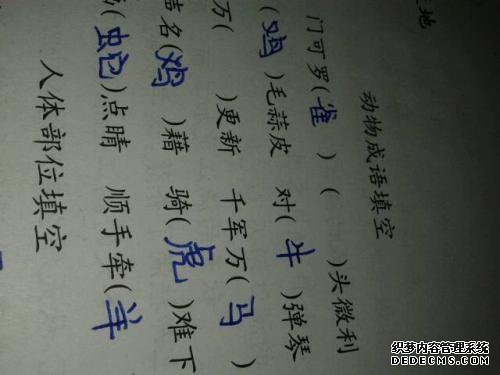 地
动物成语填空
门可罗(雀 ) ( )头微利
(鸡 )毛蒜皮 对(牛 )弹琴
万( )更新 千军万(马 )
名(鸡 )藉 骑(虎 )难下
(蛇)点睛 顺手牵(羊
人体部位填空
织梦内容管理系统
DEDECMS.COM